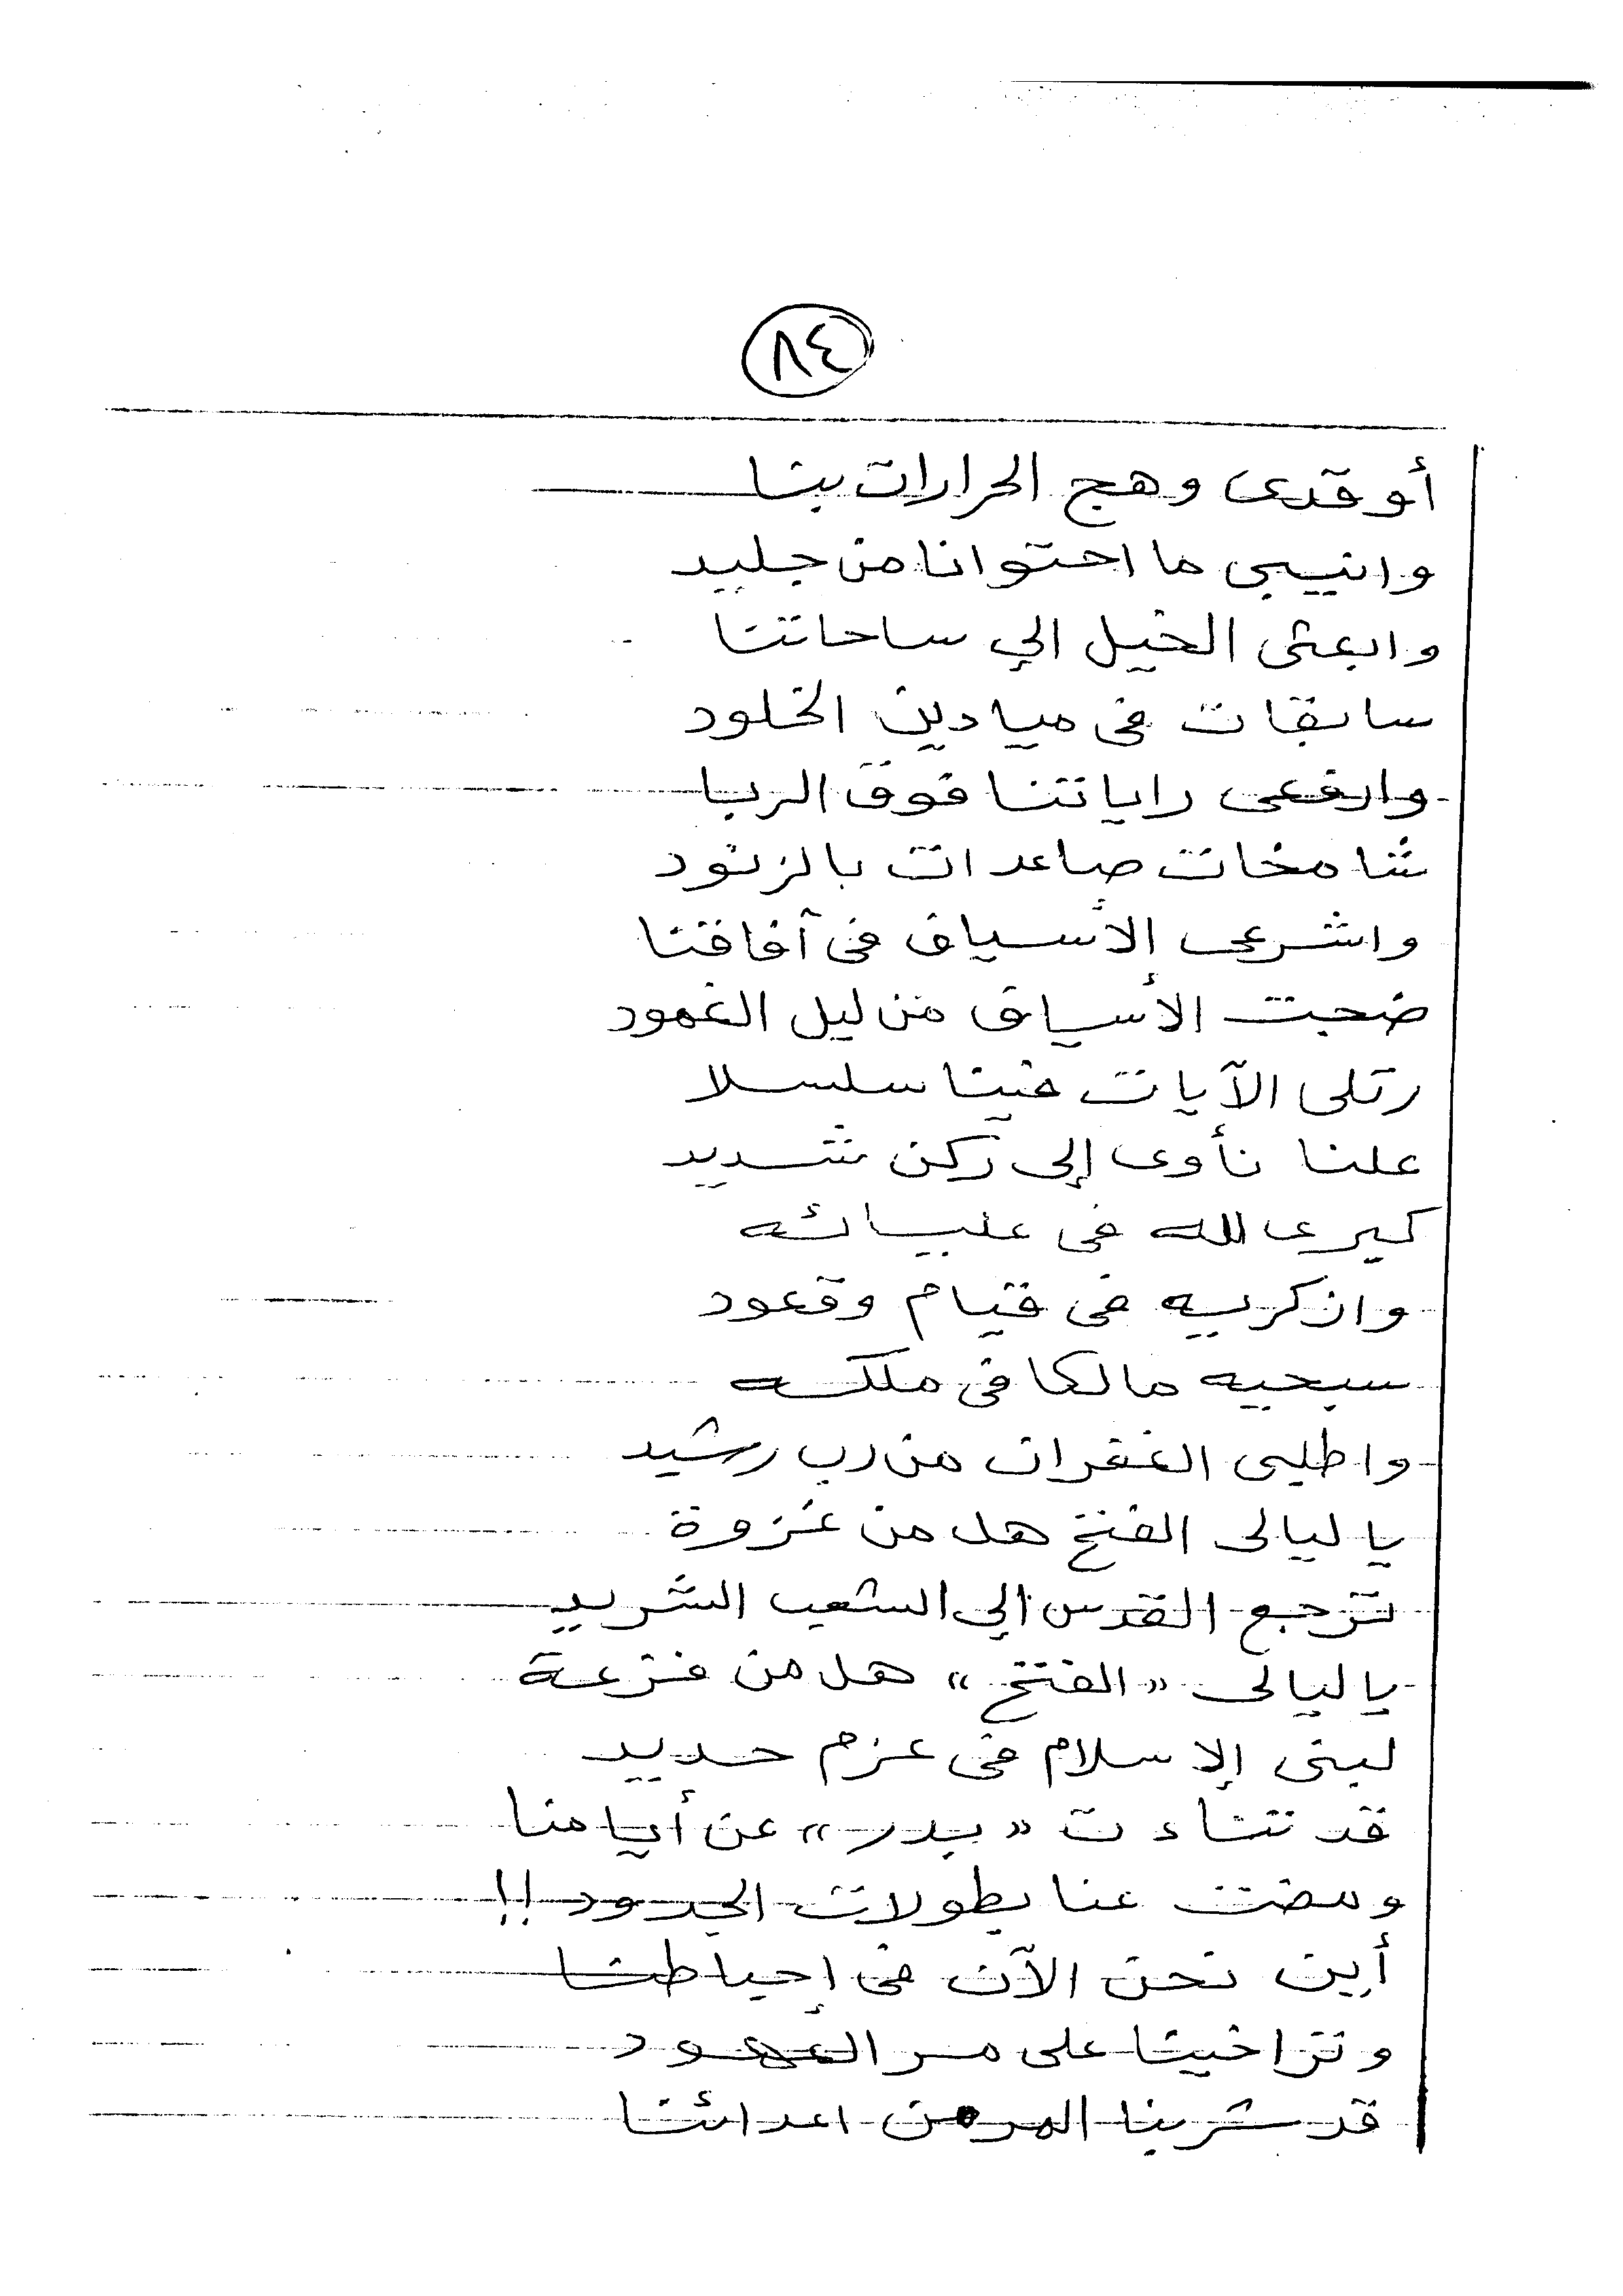 ٨٤
أوقدى وهج الحرارات بنا
واذيبى ما احتوانا من جليد
وابعثى الخيل الي ساحاتنا
سابقات فى ميادين الخلود
وارفعى راياتنا فوق الربا
شامخات صاعدات بالزنود
واشرعى الأسياف فى آفاقنا
ضجت الأسياف من ليل الغمود
رتلى الآيات فينا سلسلا
علنا نأوى إلى ركن شديد
كبرى لله فى عليائه
واذكريه فى قيام وقعود
سبحيه مالكا فى ملكه
واطلبى الغفران من رب رشيد
يا ليالى الفتح هل من غزوة
ترجع القدس الي الشعب الشريد
يا ليالى «الفتح» هل من فزعة
لبنى الإسلام فى عزم حديد
قد تناءت «بدر» عن أيامنا
ومضت عنا بطولات الجدود !!
أين نحن الآن فى إحباطنا
وتراخينا على مر العهود
قد شربنا المر من اعدائنا